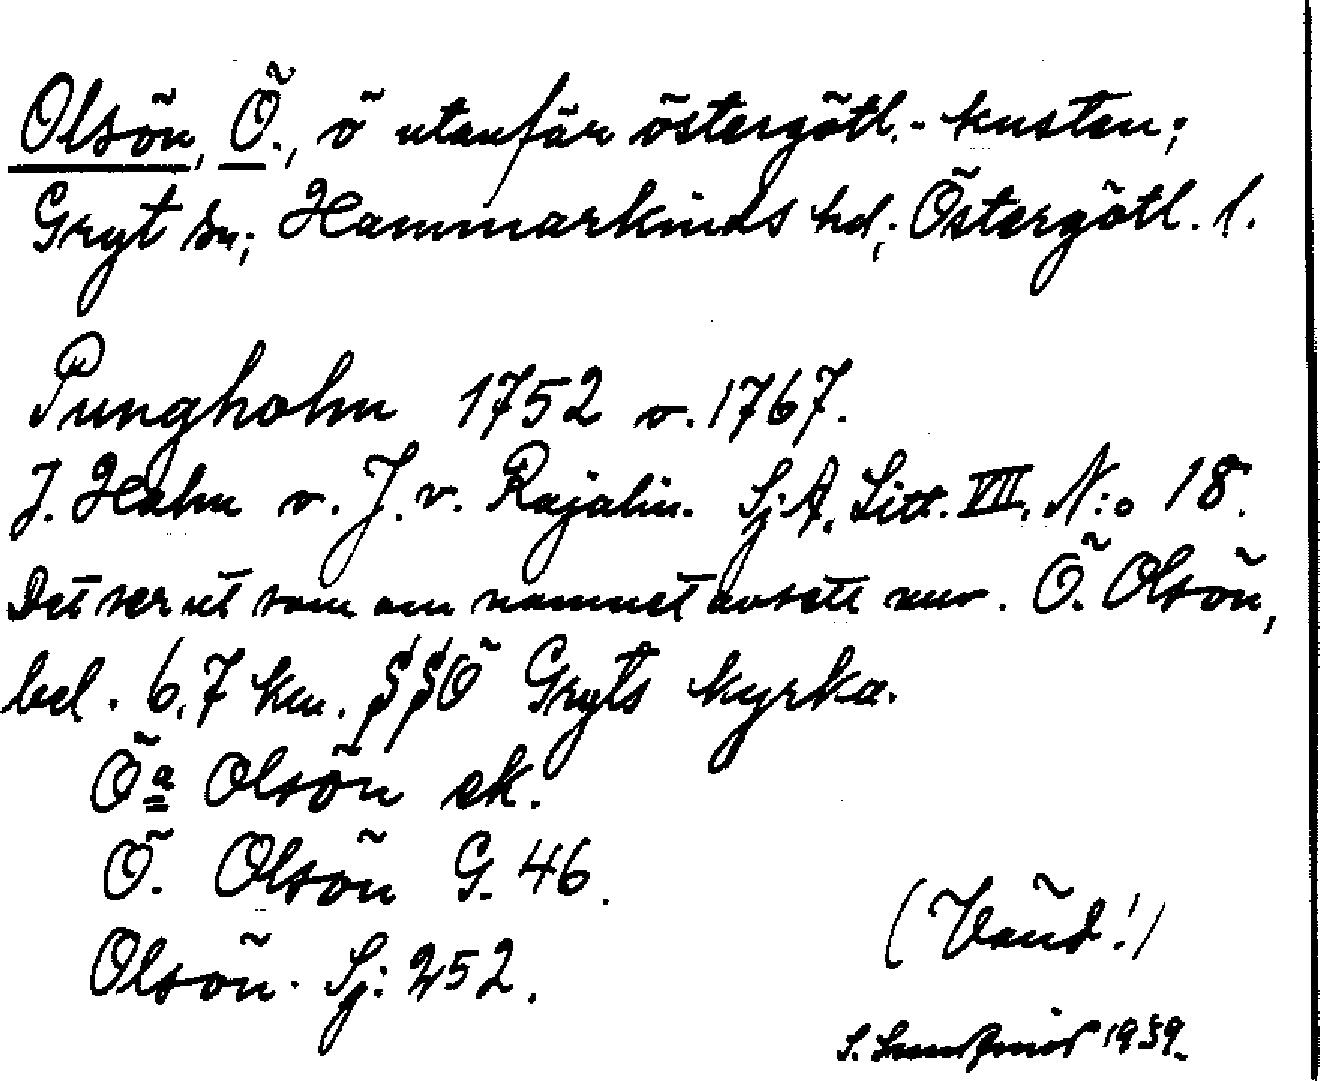 Olsön, Ö., ö utanför östergötl.-kusten;
Gryt sn; Hammarkinds hd; Östergötl. l.
Pungholm 1752 o. 1767.
J. Hahn o. J. v. Rajalin. Sj. A. Litt. VIII. N:o 18.
Det ser ut som om namnet avsett nuv. Ö. Olsön,
bel. 6,7 km. SSÖ Gryts kyrka.
Ö:a Olsön ek.
Ö. Olsön G. 46.
Olsön. Sj: 252.
(Vänd!)
S. 1939.